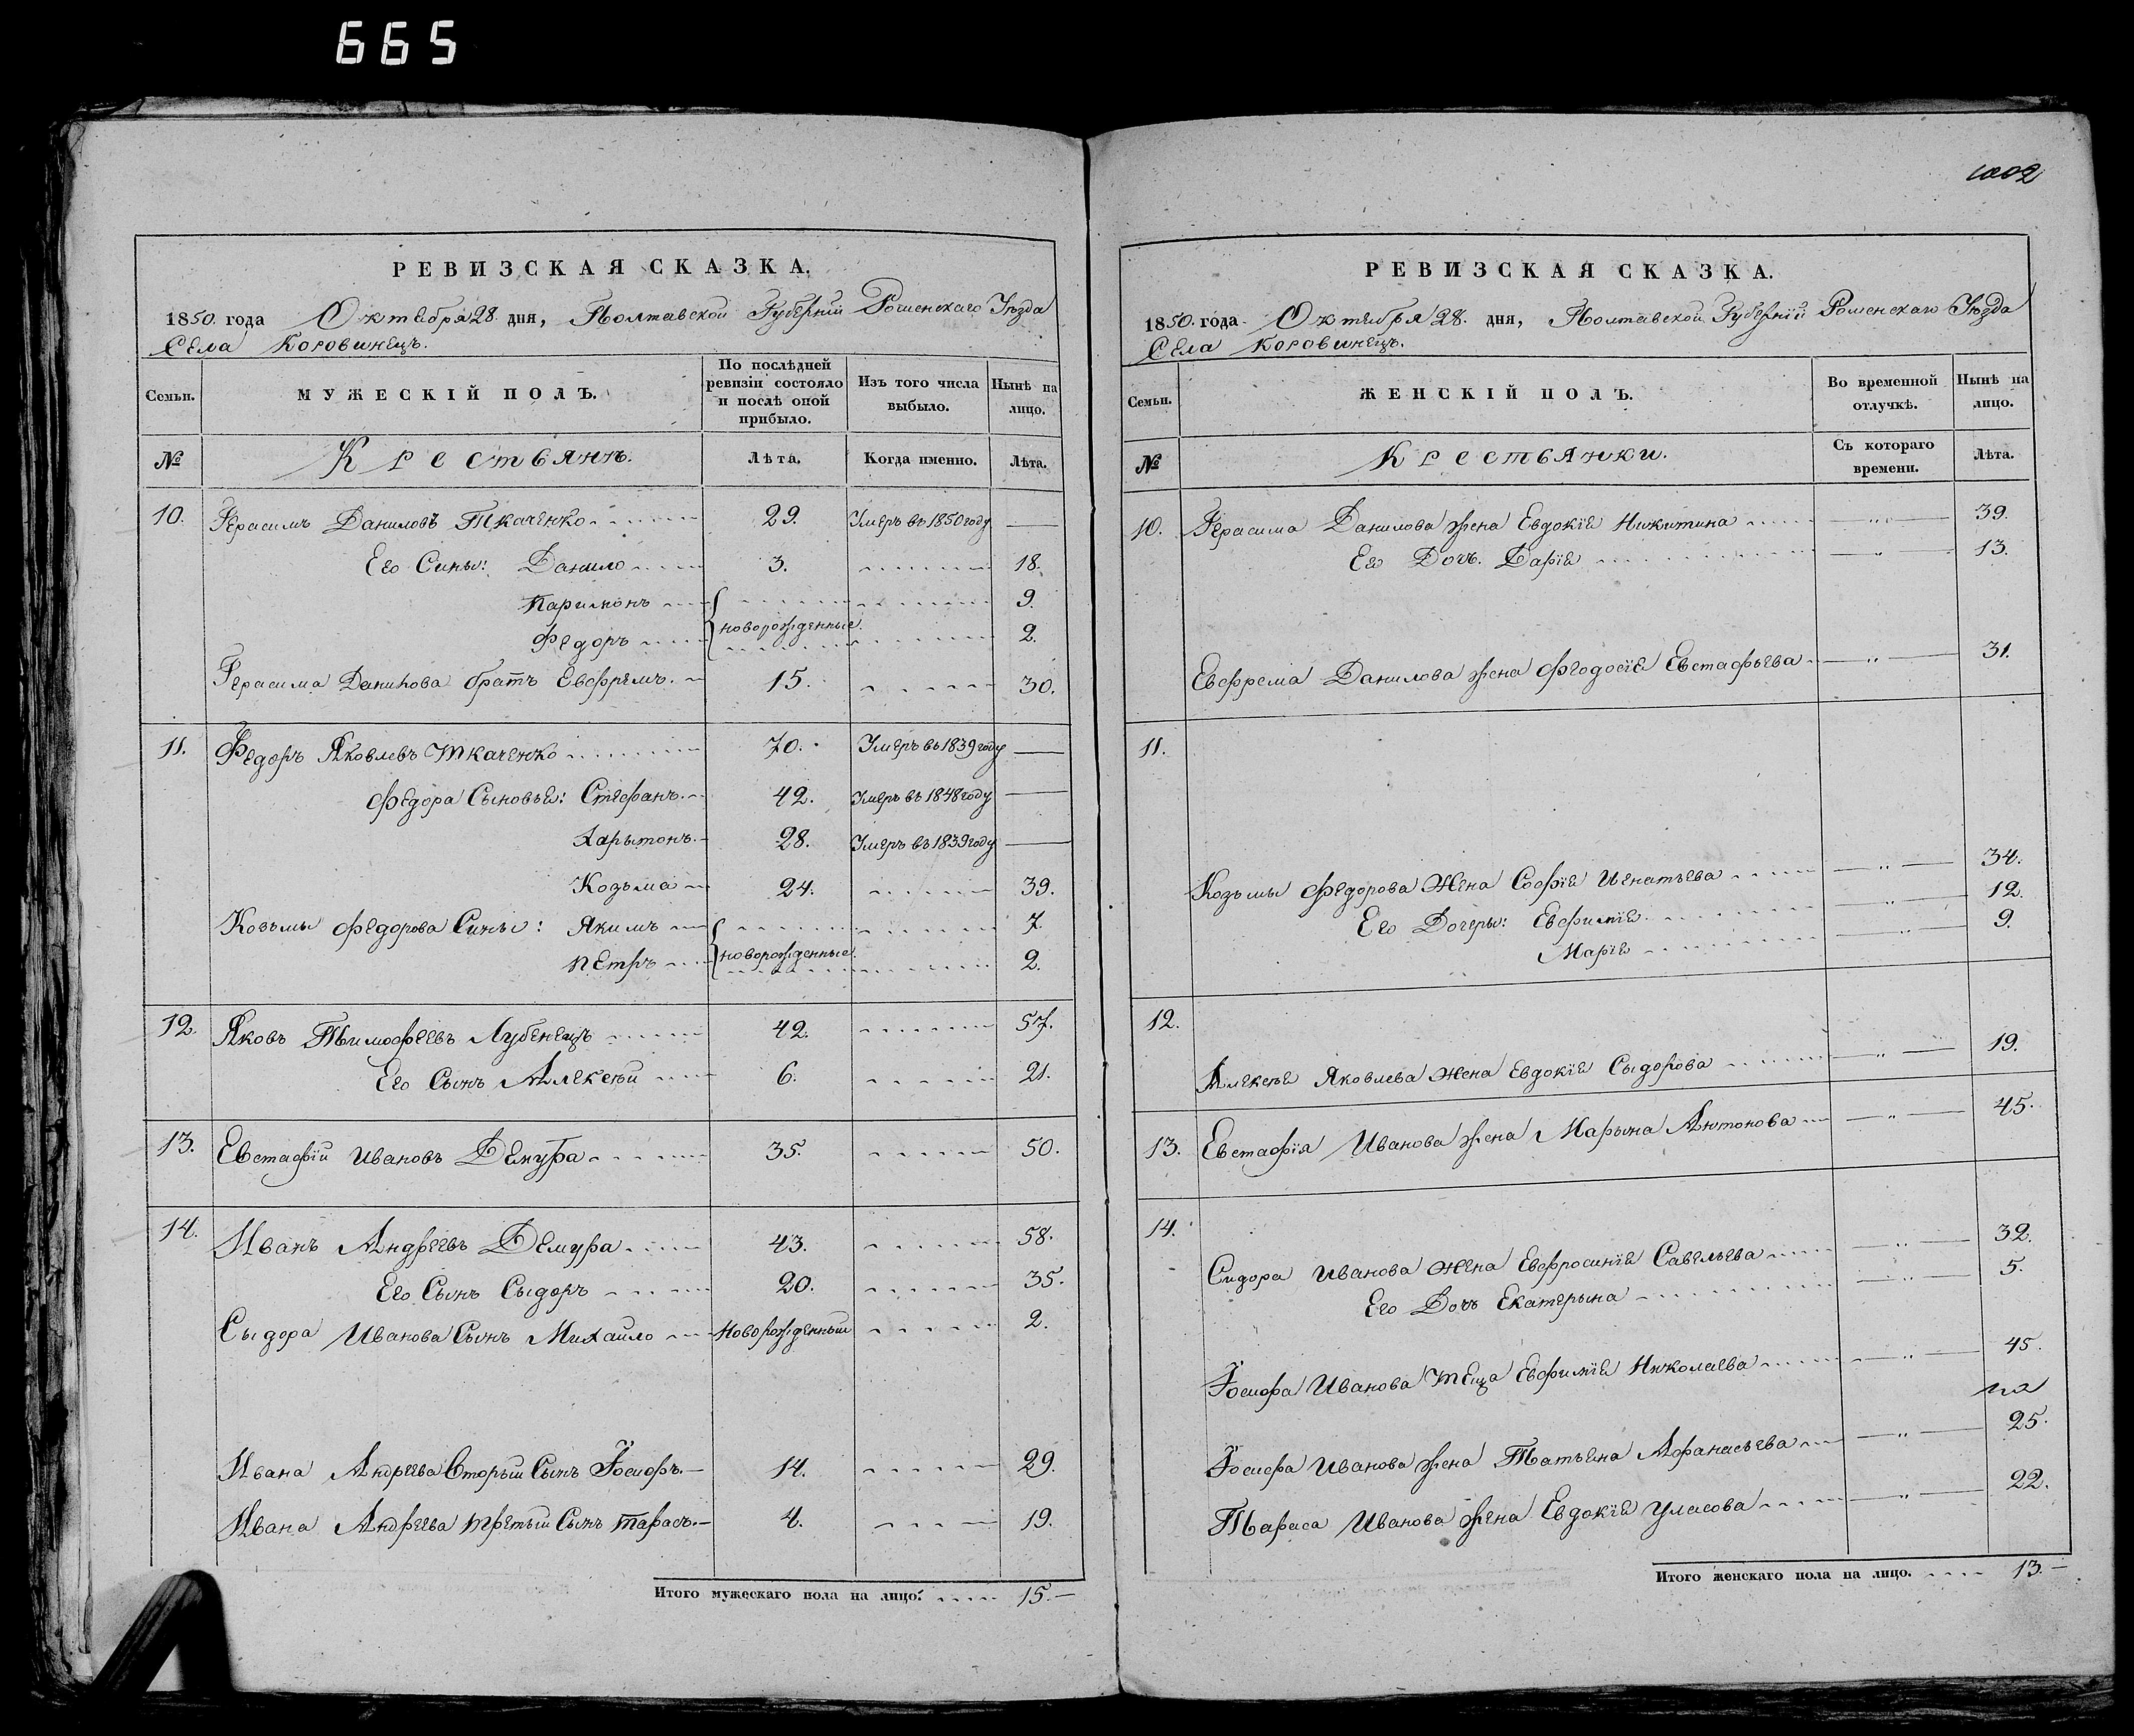 665
1002
РЕВИЗСКАЯ СКАЗКА.
1850. года Октября 28. дня, Полтавской Губерніи Роменскаго Уезда
Села Коровинецъ.
Семьи. МУЖЕСКІЙ ПОЛЪ. По послѣдней ревизіи состояло и послѣ оной прибыло. Изъ того числа выбыло. Нынѣ на лицо.
№ Крестьянъ. Лѣта. Когда именно. Лѣта.
10. Герасимъ Даниловъ Ткаченко 29. Умеръ въ 1850 году —
Его Сины: Данило 3. 18.
Паримонъ 9.
новорожденные.
Федоръ 2.
Герасима Данилова братъ Евфремъ. 15. 30.
11. Федоръ Яковлевъ Ткаченко 70. Умеръ въ 1839 году —
Федора Сыновья: Стефанъ. 42. Умеръ въ 1848 году —
Харытонъ. 28. Умеръ въ 1839 году —
Козьма 24. 39.
Козьмы Федорова Сины: Якимъ 7.
новорожденные.
Петръ 2.
12. Яковъ Тимофеевъ Лубенецъ 42. 57.
Его Сынъ Алексѣй 6. 21.
13. Евстафій Ивановъ Демура 35. 50.
14. Иванъ Андреевъ Демура 43. 58.
Его Сынъ Сыдоръ 20. 35.
Сыдора Иванова Сынъ Михайло Новорожденный 2.
Ивана Андреева Вторый Сынъ Іосифъ. 14. 29.
Ивана Андреева Третый Сынъ Тарасъ. 4. 19.
Итого мужескаго пола на лицо. 15.
РЕВИЗСКАЯ СКАЗКА.
1850. года Октября 28. дня, Полтавской Губерніи Роменскаго Уѣзда
Села Коровинецъ.
Семьи. ЖЕНСКІЙ ПОЛЪ. Во временной отлучкѣ. Нынѣ на лицо.
№ Крестьянки. Съ котораго времени. Лѣта.
10. Герасима Данилова жена Евдокія Никитина 39.
Ея Дочь. Дарія 13.
Евфрема Данилова жена Феодосія Евстафьева 31.
11.
Козьмы Федорова Жена Софія Игнатьева 34.
Его Дочеры: Евфимія 12.
Марія 9.
12.
Алексѣя Яковлева Жена Евдокія Сыдорова 19.
13. Евстафія Иванова жена Марына Антонова 45.
14.
Сидора Иванова Жена Евфросинія Савельева 32.
Его Дочь Екатерына 5.
Іосифа Иванова Теща Евфимія Николаева 45.
Іосифа Иванова жена Татьяна Афанасьева 25.
Тараса Иванова жена Евдокія Уласова 22.
Итого женскаго пола на лицо. 13.